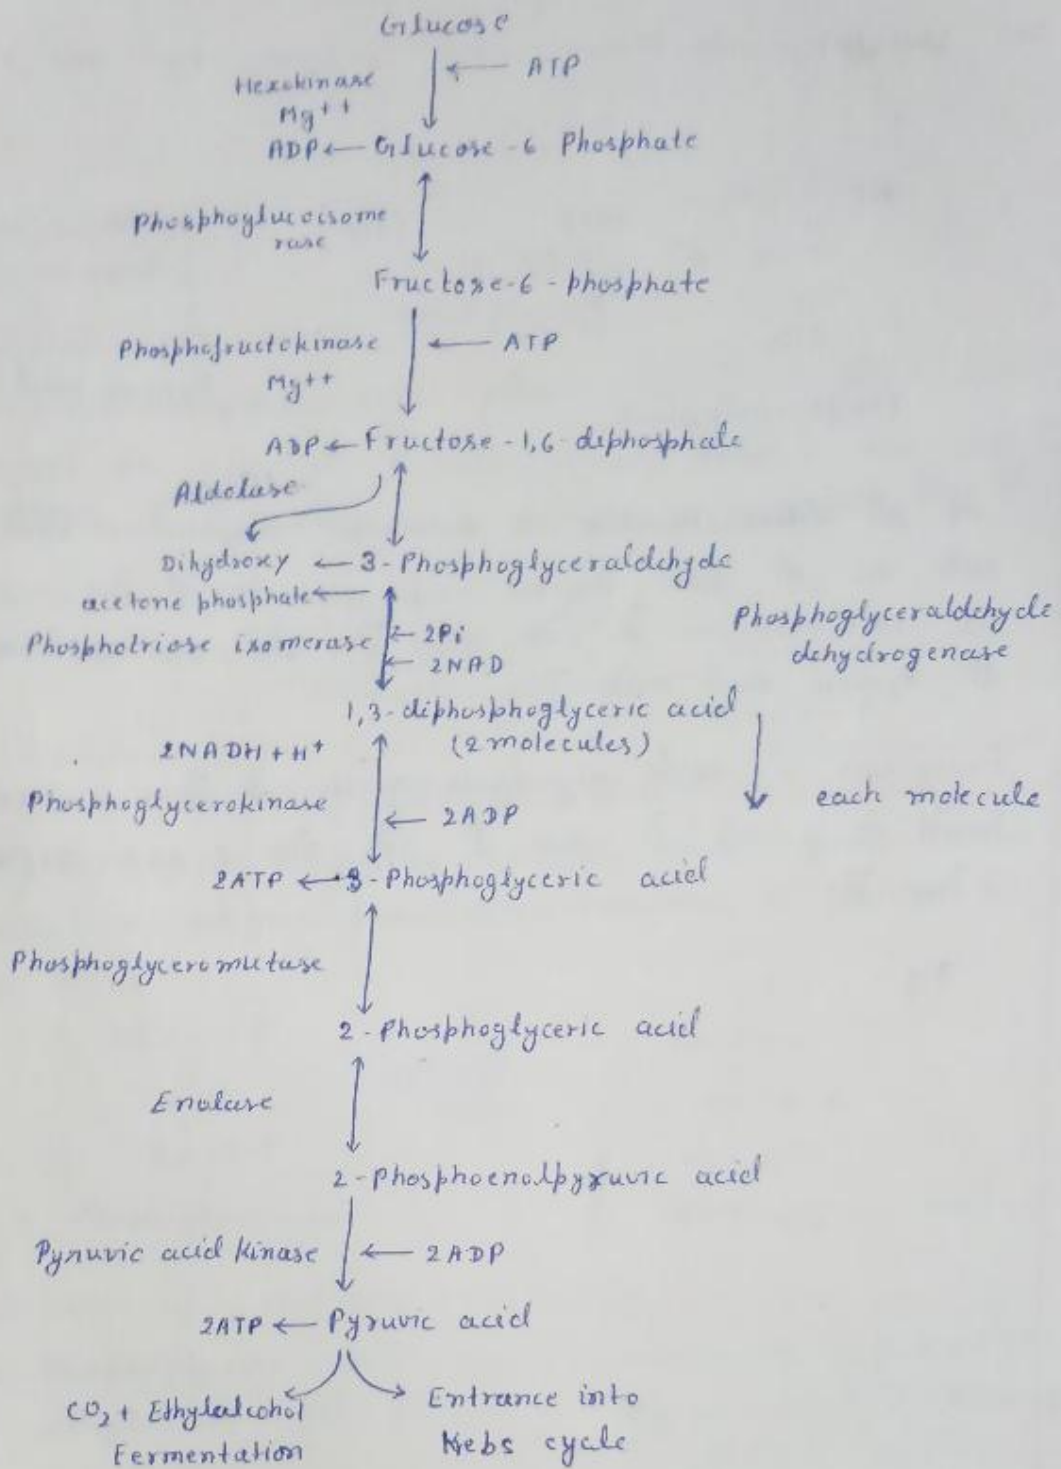 Glucose
Hexokinase ← ATP
Mg++
ADP ← Glucose - 6 Phosphate
Phosphoglucoisome
rase
Fructose-6-phosphate
Phosphofructokinase ← ATP
Mg++
ADP ← Fructose -1,6 diphosphate
Aldolase
Dihydroxy ← 3-Phosphoglyceraldehyde
acetone phosphate ←
Phosphotriose isomerase ← 2Pi
← 2NAD
Phosphoglyceraldehyde
dehydrogenase
1,3-diphosphoglyceric acid
(2 molecules)
2NADH + H+
Phosphoglycerokinase ← 2ADP
each molecule
2ATP ← 3-Phosphoglyceric acid
Phosphoglyceromutase
2-Phosphoglyceric acid
Enolase
2-Phosphoenolpyruvic acid
Pyruvic acid kinase ← 2ADP
2ATP ← Pyruvic acid
CO2 + Ethylalcohol
Fermentation
Entrance into
Krebs cycle